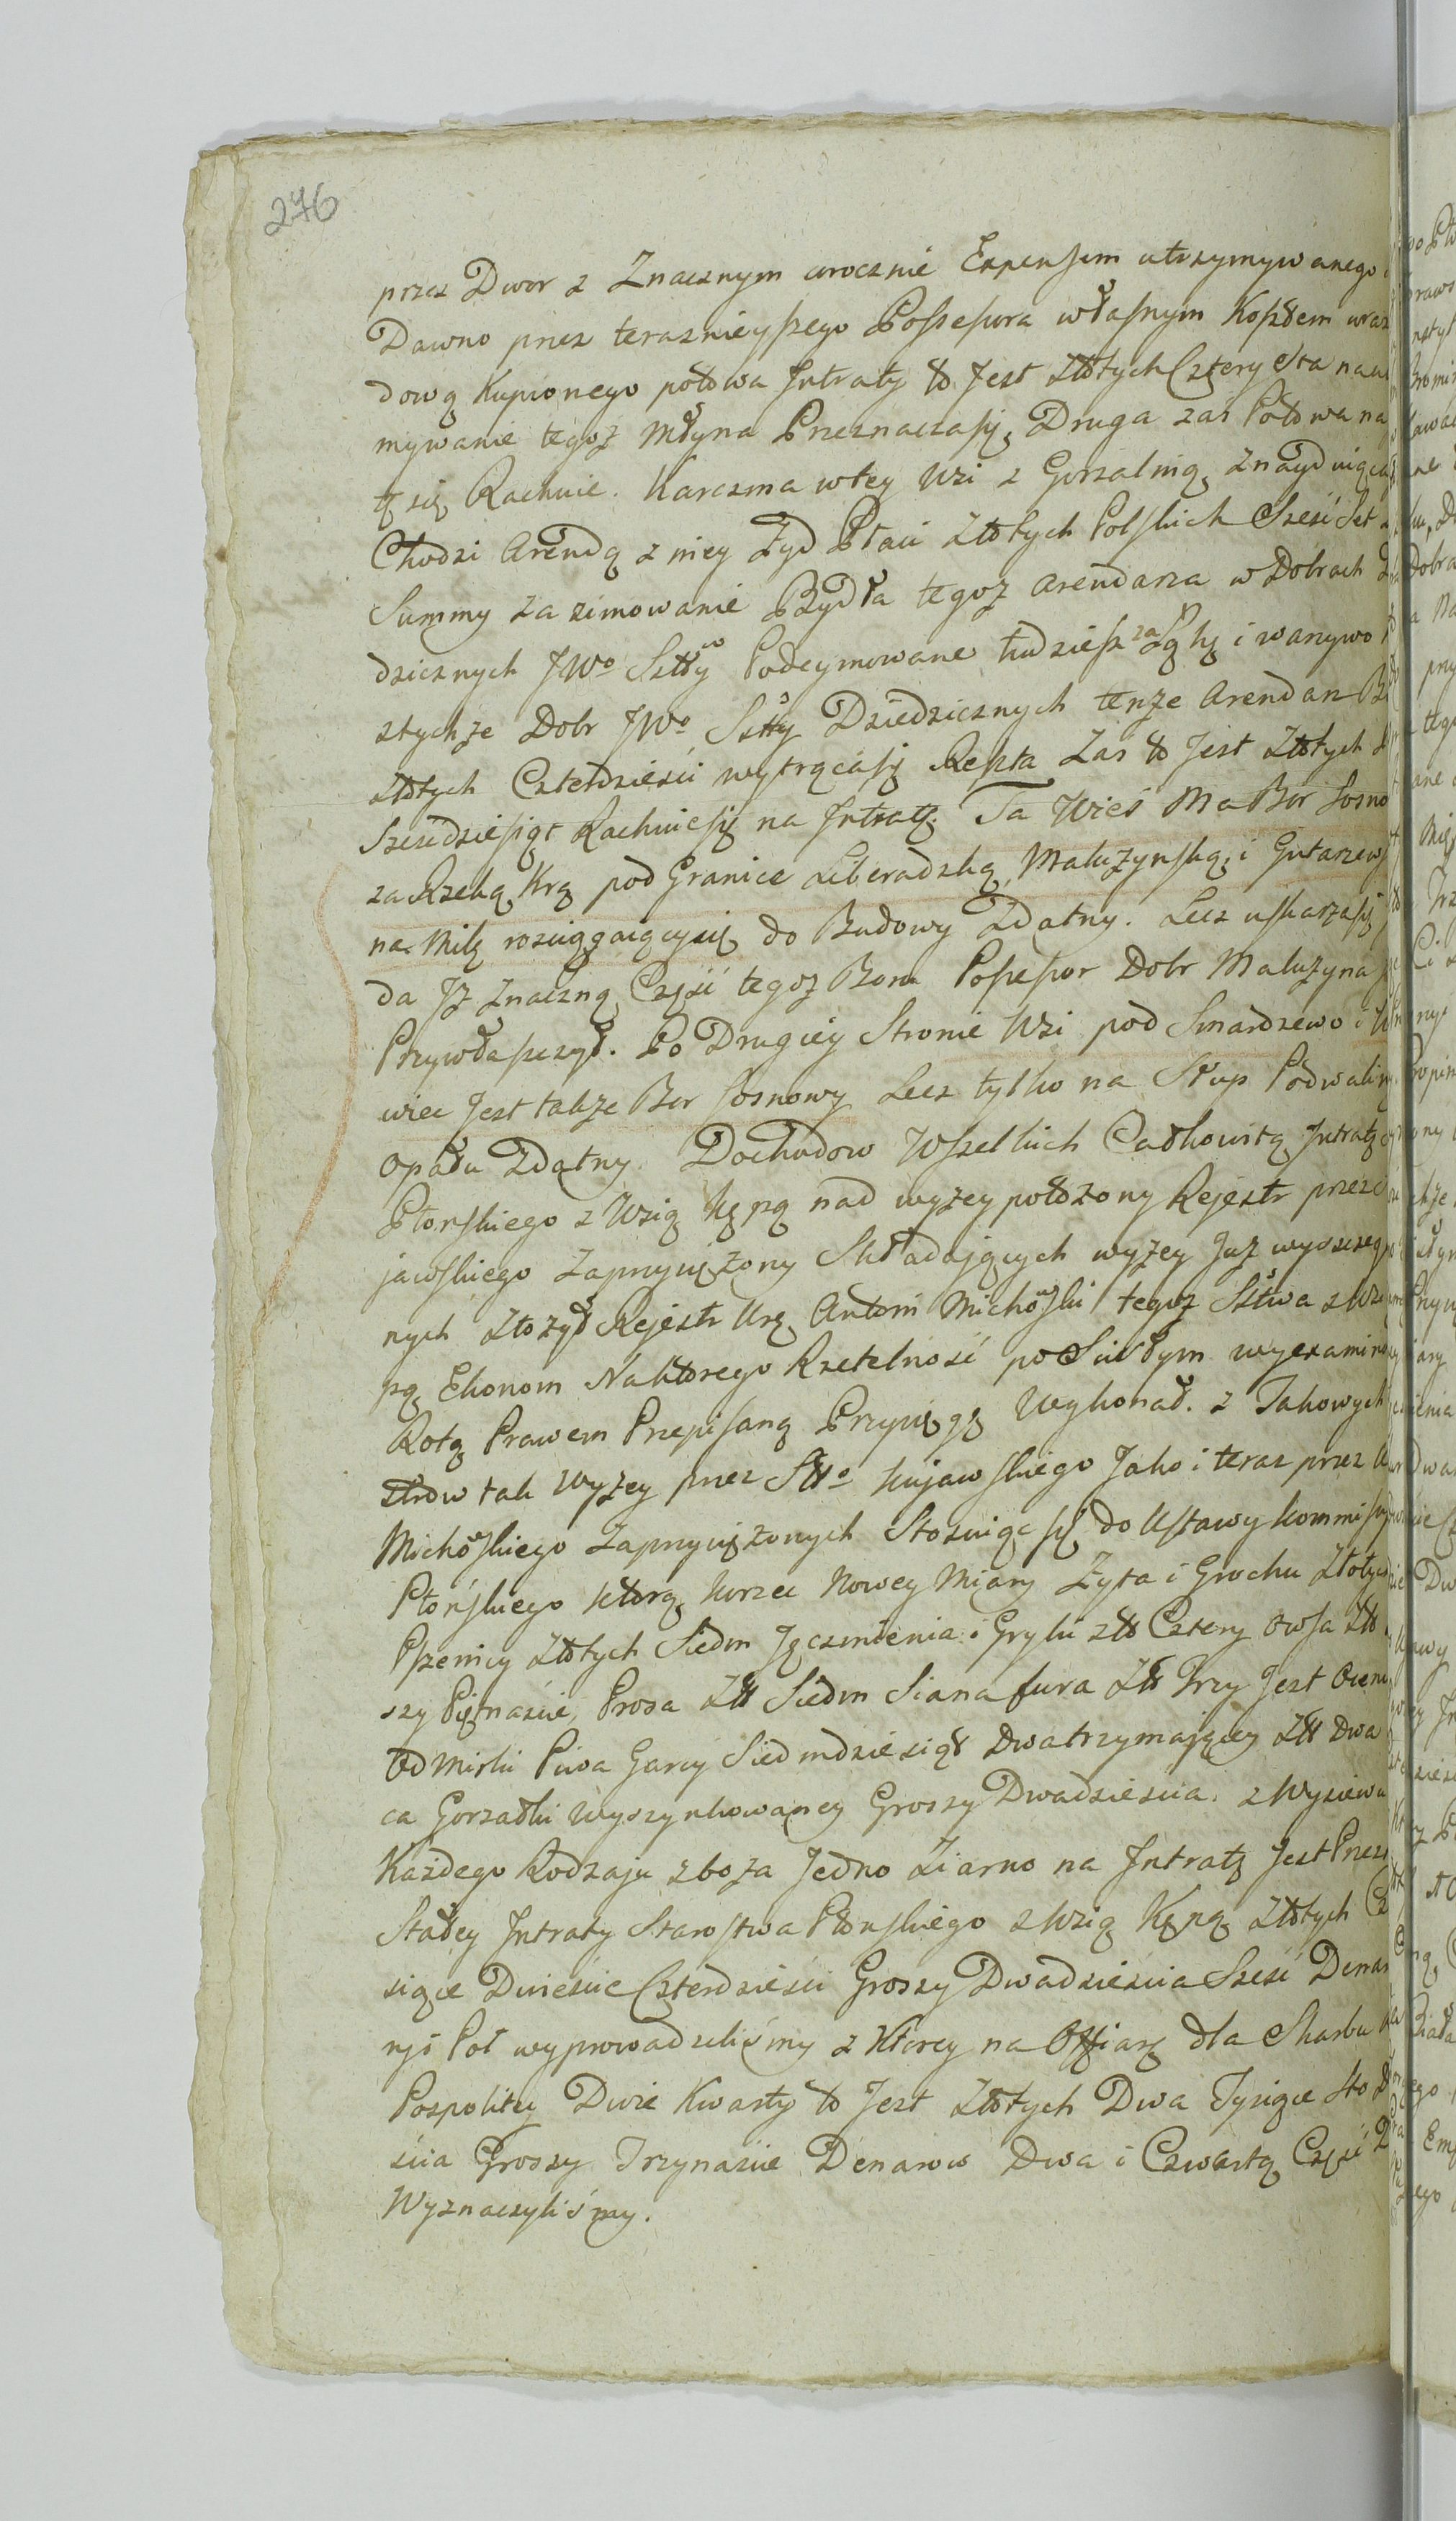 276
przez Dwor z Znacznym corocznie Expensem utrzymywanego
Dawno przez teraznieyszego Possessora własnym Kosztem wraz
dową Kupionego połowa Intraty to Jest Złotych Cztery Sta na
mywanie tegoż Młyna Przeznaczasię, Druga zaś Połowa na
tę się Rachuie. Karczma wtey Wsi z Gorzalnią Znayduiąca
Chodzi Arendą z niey Żyd Płaci Złotych Polskich Sześć Set
Summy za zimowanie Bydła tegoż Arendarza w Dobrach
dzicznych JWo Sztty Podeymowane tudzież za Łąkę i warzywo
ztychże Dobr JWo Sztty Dziedzicznych tenże Arendarz
złotych Czterdzieści wytrącasię Reszta Zas to Jest Złotych
Sześćdziesiąt Rachuiesię na Intratę. Ta Wieś Ma Bor Sosno
za Rzeką Krą pod Granice Liberadzką, Malużynską i Gutarzew
na Milę rozciągaiącysię do Budowy Zdatny. Lecz uskarzasię
da Iż Znaczną Część tegoż Boru Possessor Dobr Malużyna
Przywłaszczył. Po Drugiey Stronie Wsi pod Smardzewo i
wiec Jest także Bor Sosnowy Lecz tylko na Słup Podwalin
Opału Zdatny. Dochodow Wszelkich Całkowitą Intratę
Płonskiego z Wsią Kępą nad wyżey położony Rejestr przez
jawskiego Zaprzysiężony Składających wyżey Już wyszczeg
nych Złożył Rejestr Urz. Antoni Michowski tegoż Sttwa z Ws
pą Ekonom Naktorego Rzetelność po Scisłym wyexamino
Rotą Prawem Przepisaną Przysięgę Wykonał. z Takowych
strow tak Wyżey przez Stto Kujawskiego Jako i teraz przez
Michowskiego Zaprzysiężonych Stosuiąc się do Ustawy Kommissy
Płońskiego którą korzec Nowey Miary Żyta i Grochu Złotych
Pszenicy Złotych Siedm Jęczmienia i Gryki złł Cztery Owsa złł
szy Piętnaście, Prosa Złł Siedm Siana fura Złł Trzy Jest Ocen
Od Mirki Piwa Garcy Siedmdziesiąt Dwatrzymającey Złł Dwa
ca Gorzałki wyszynkowaney Groszy Dwadziescia. z Wysiewu
Każdego Rodzaju zboża Jedno Ziarno na Intratę Jest Przez
Stałey Intraty Starostwa Płonskiego z Wsią Kępą Złotych
siące Dwieście Czterdzieści Groszy Dwadzieścia Sześć Denar
ryi Poł wyprowadziliśmy z Ktorey na Offiarę dla Skarbu
Pospolitey Dwie Kwarty to Jest Złotych Dwa Tysiące Sto
ścia Groszy Trzynaście Denarow Dwa i Czwartą Część
Wyznaczyliśmy.